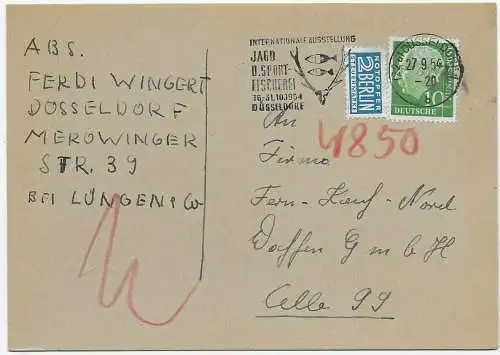 ABS.
FERDI WINGERT
DÜSSELDORF
MEROWINGER
STR. 39
BEI LÜNGEN & Co
INTERNATIONALE AUSSTELLUNG
JAGD
U. SPORT-
FISCHEREI
16.-31.10.1954
DÜSSELDORF
NOTOPFER
2 BERLIN
STEUERMARKE
DÜSSELDORF
27.9.54
-20
10
DEUTSCHE
4850
An
Firma
Fern-Kauf-Nord
Waffen G m b H
Celle 99